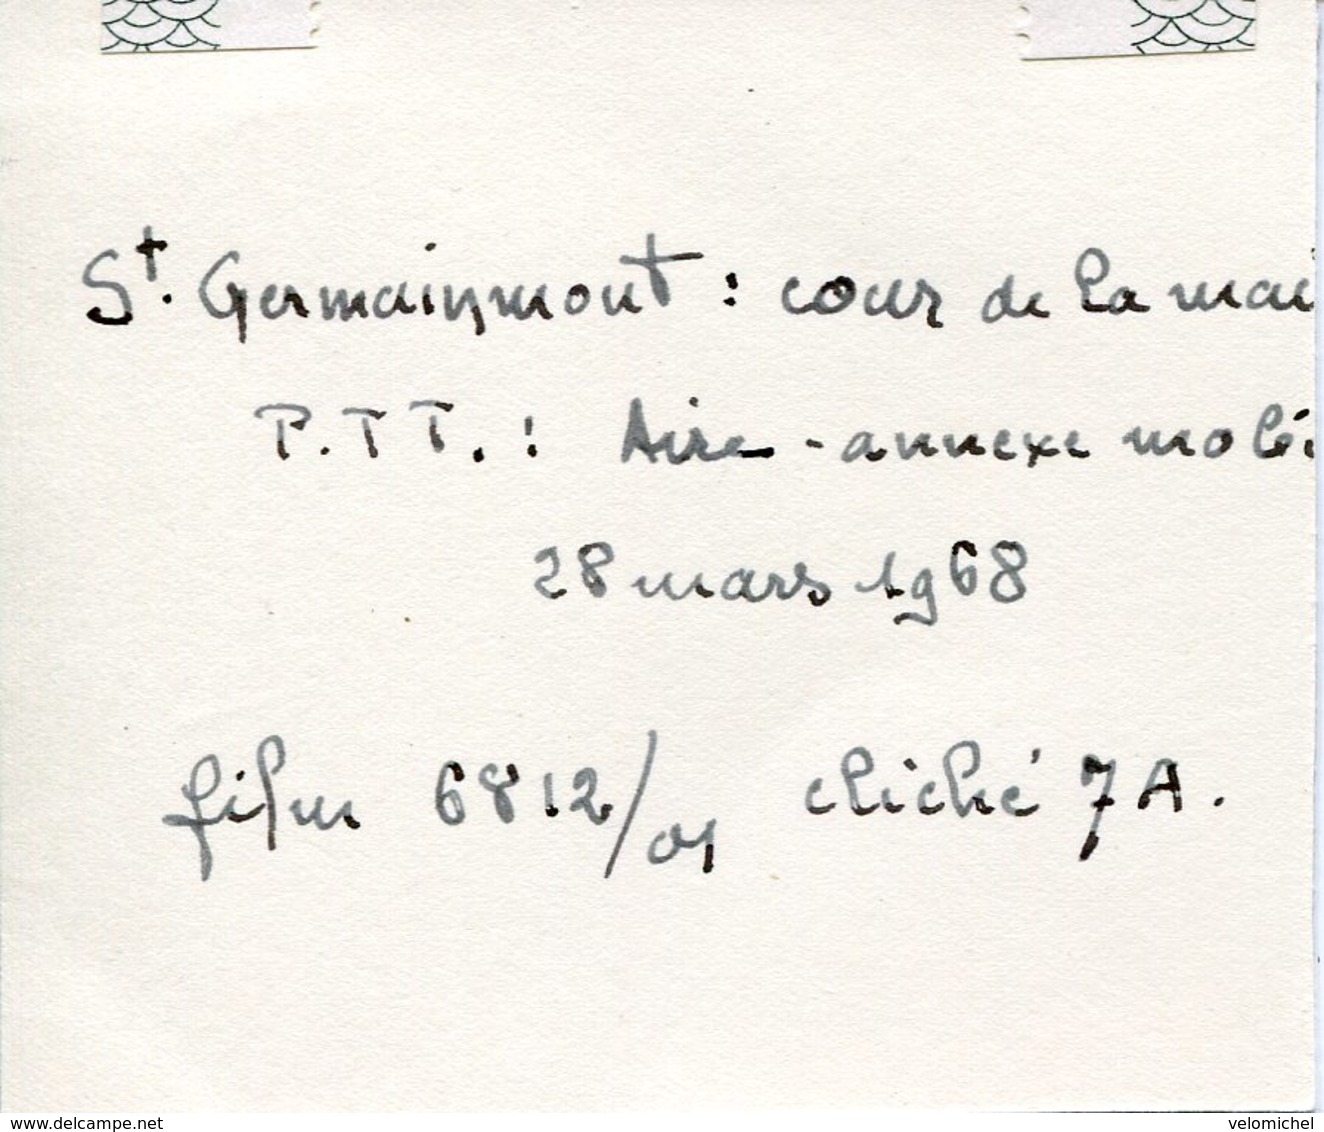 St. Germainmont : cour de la mai
P.TT. : Aire-annexe mobi
28 mars 1968
film 6812/01 cliché 7A.
www.delcampe.net velomichel